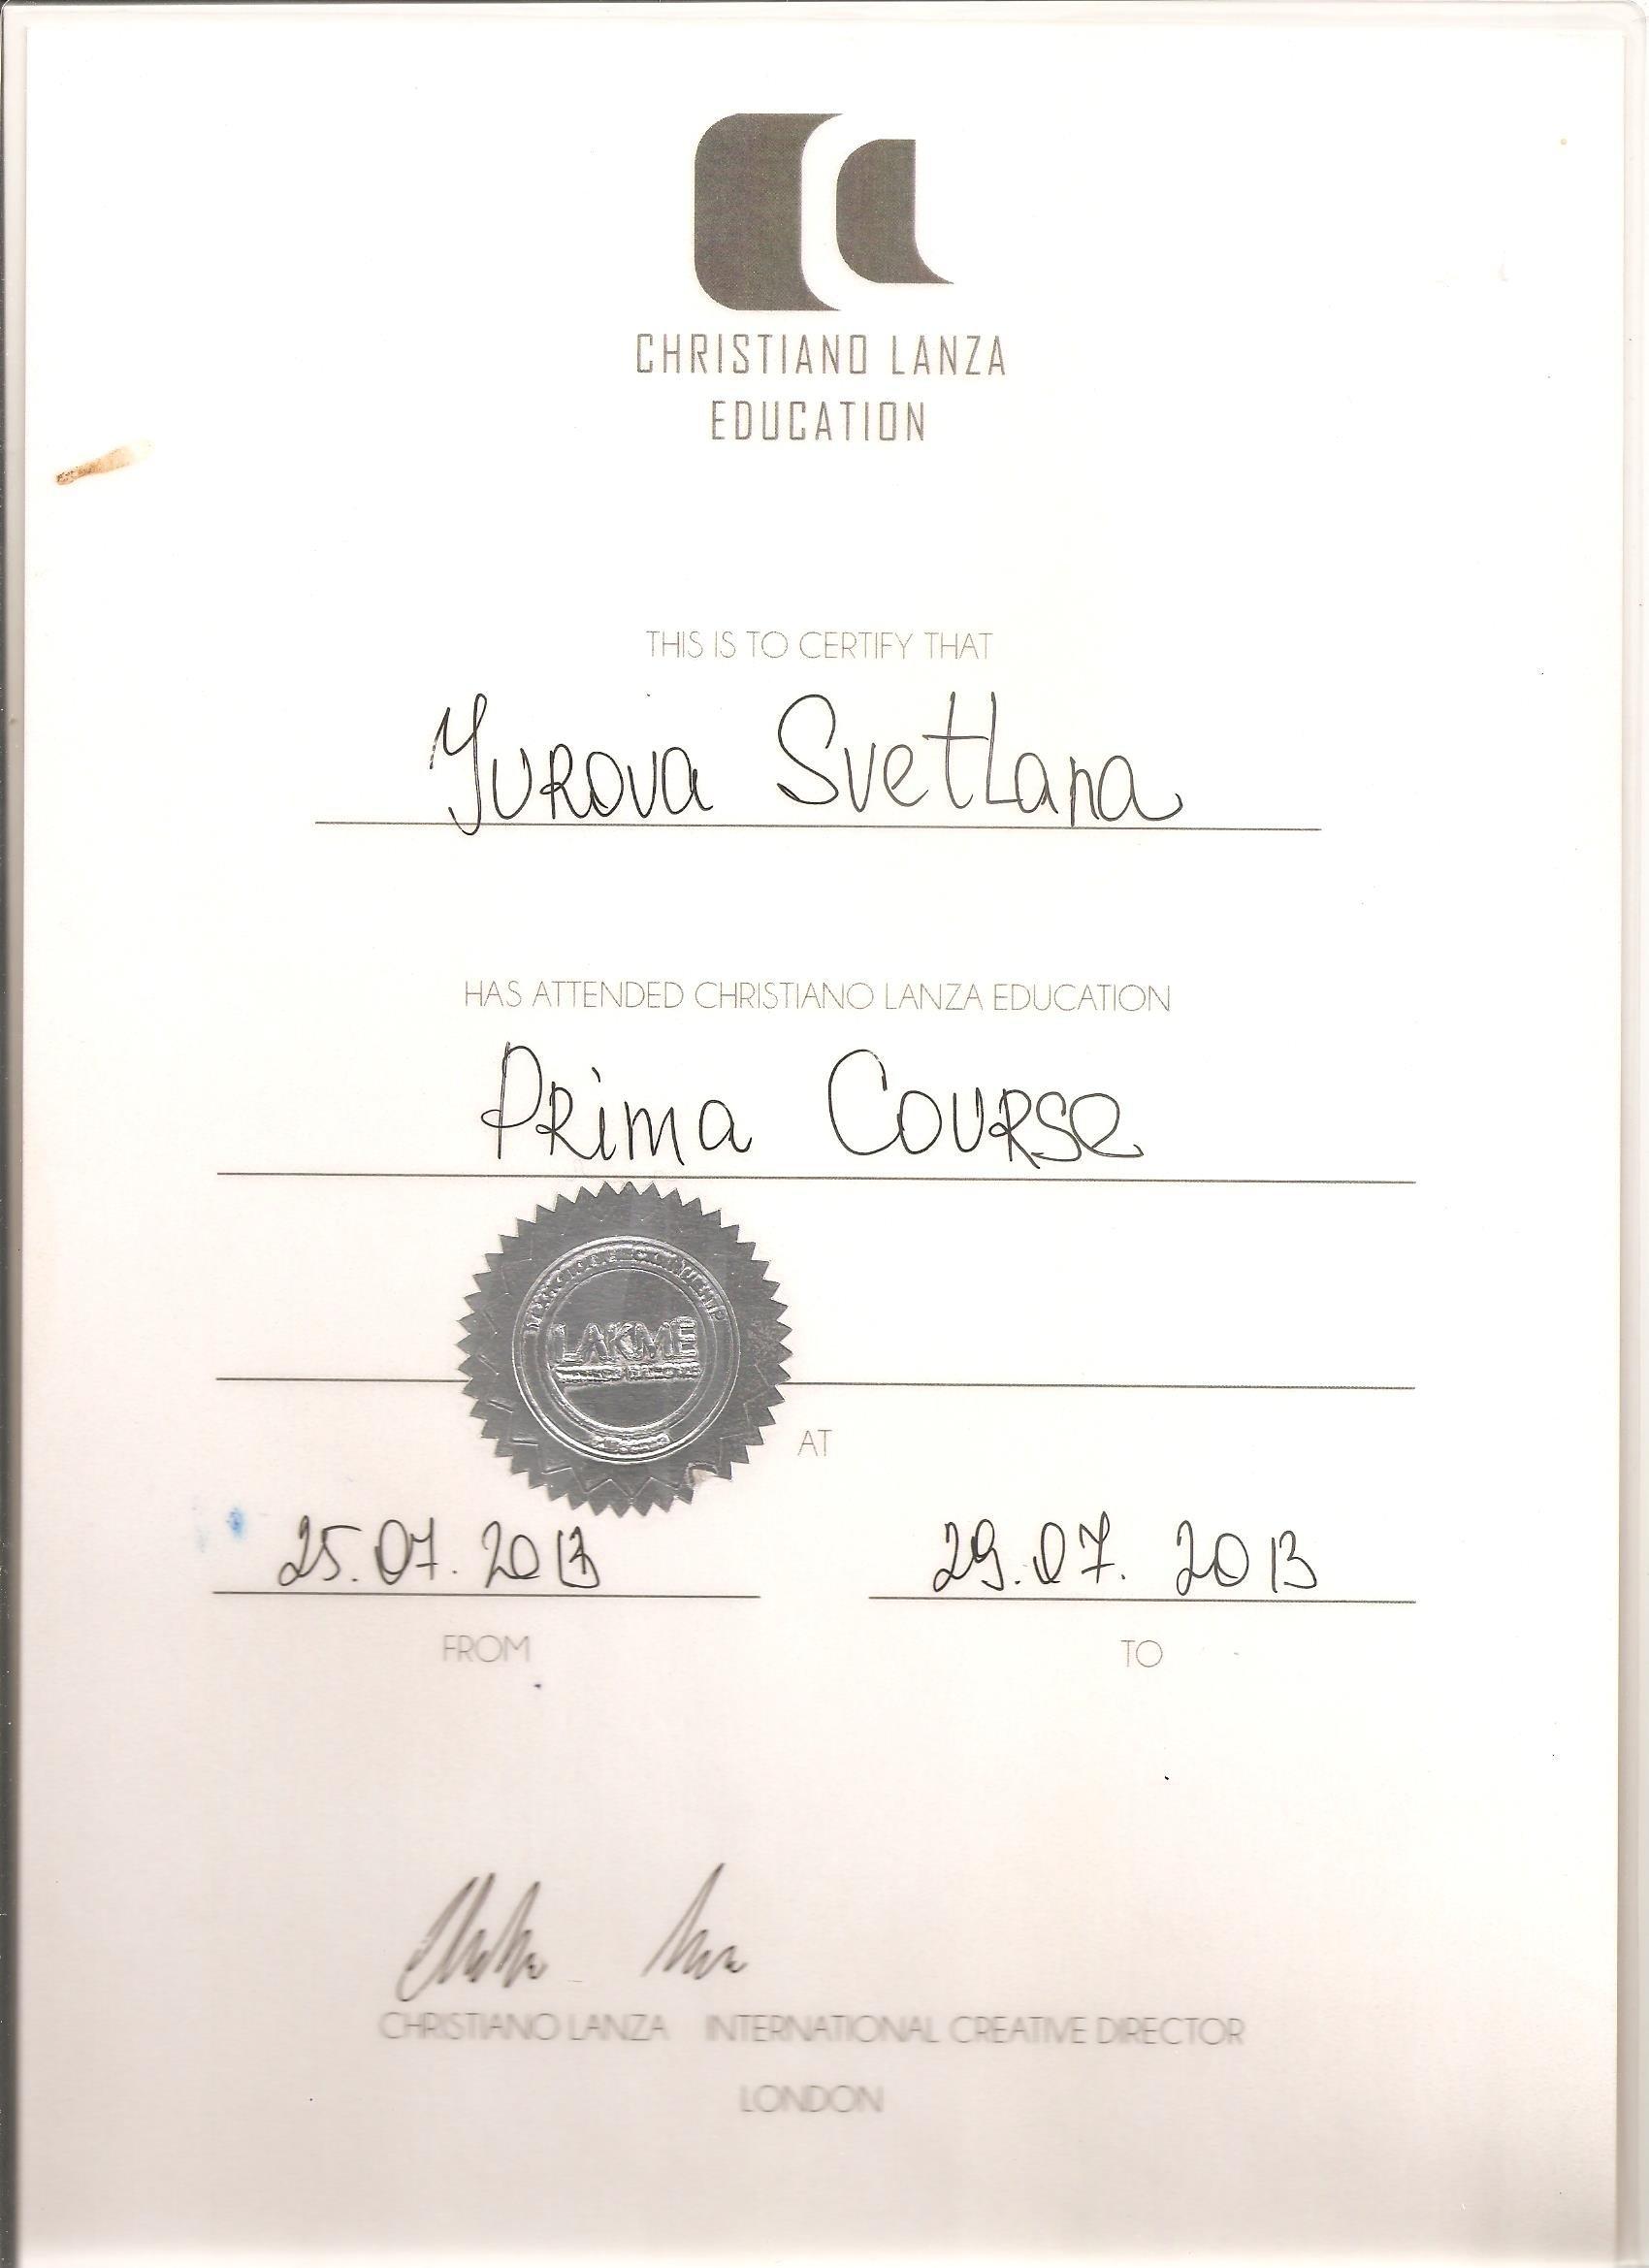 CHRISTIANO LANZA
EDUCATION
THIS IS TO CERTIFY THAT
Yurova Svetlana
HAS ATTENDED CHRISTIANO LANZA EDUCATION
Prima Course
LAKMÉ
AT
25.07.2013 29.07.2013
FROM TO
CHRISTIANO LANZA INTERNATIONAL CREATIVE DIRECTOR
LONDON